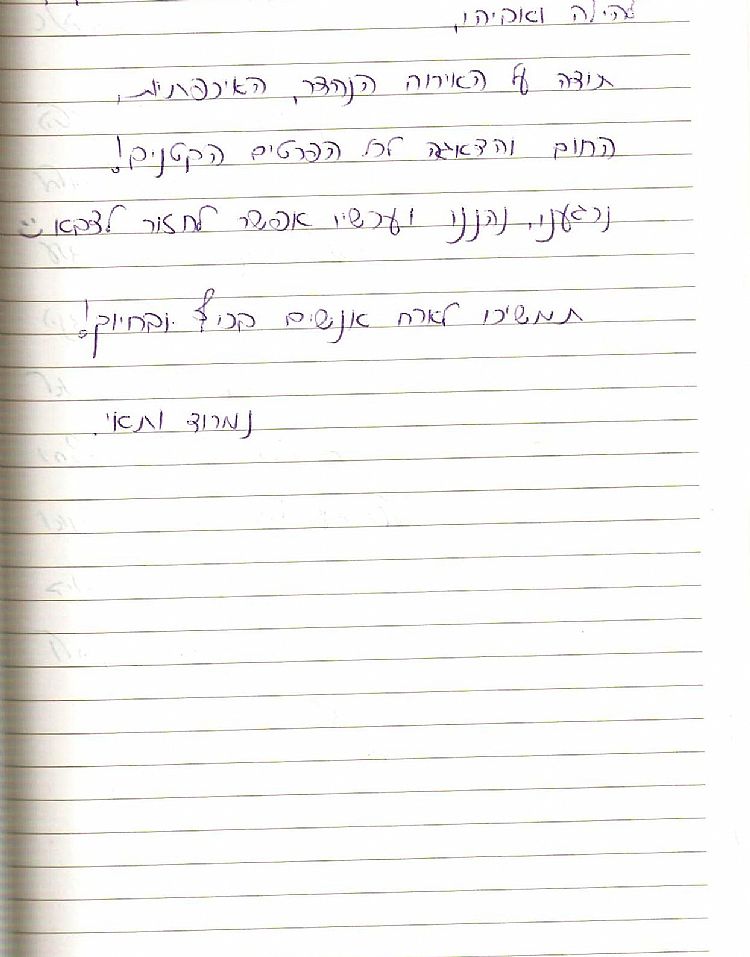 להילה ואקיהו,
תודה על האירוח הנהדר, האיכפתיות,
החום והדאגה לכל הפרטים הקטנים!
נרגענו, נהננו ועכשיו אפשר לחזור לצבא :)
תמשיכו לארח אנשים בכיף ובחיוך!
נמרוד ותאי.